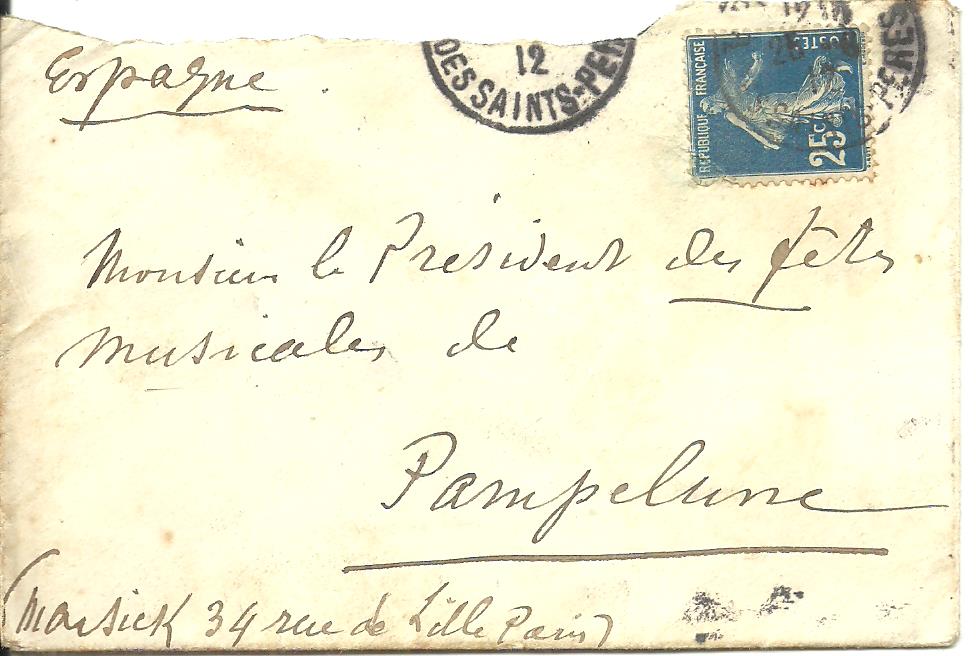 Espagne
12
DES SAINTS-PÈR
RÉPUBLIQUE FRANÇAISE
POSTES
25c
PÈRES
Monsieur le Président des fêtes
musicales de
Pampelune
(Marsick 34 rue de Lille Paris)